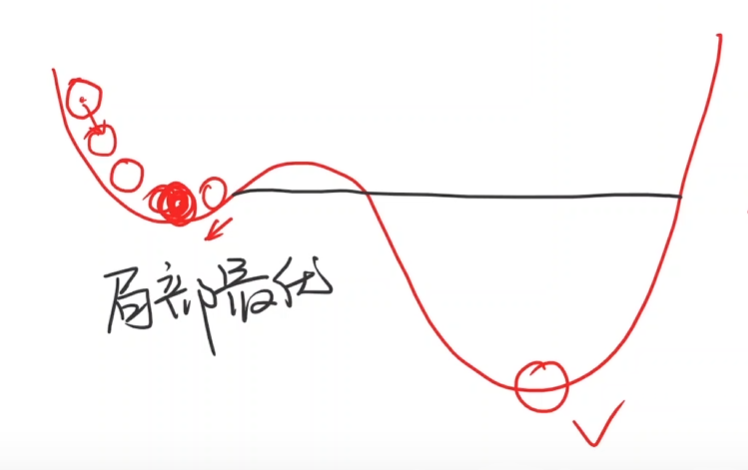 局部最优